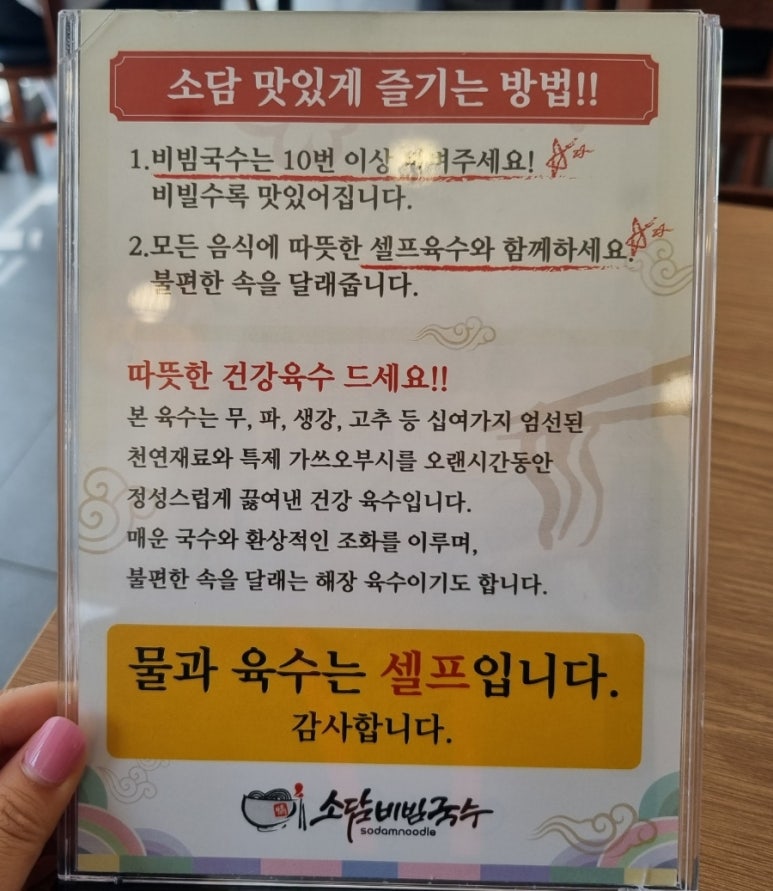 소담 맛있게 즐기는 방법!!
1.비빔국수는 10번 이상 비벼주세요!
비빌수록 맛있어집니다.
2.모든 음식에 따뜻한 셀프육수와 함께하세요.
불편한 속을 달래줍니다.
따뜻한 건강육수 드세요!!
본 육수는 무, 파, 생강, 고추 등 십여가지 엄선된
천연재료와 특제 가쓰오부시를 오랜시간동안
정성스럽게 끓여낸 건강 육수입니다.
매운 국수와 환상적인 조화를 이루며,
불편한 속을 달래는 해장 육수이기도 합니다.
물과 육수는 셀프입니다.
감사합니다.
소담비빔국수
sodamnoodle